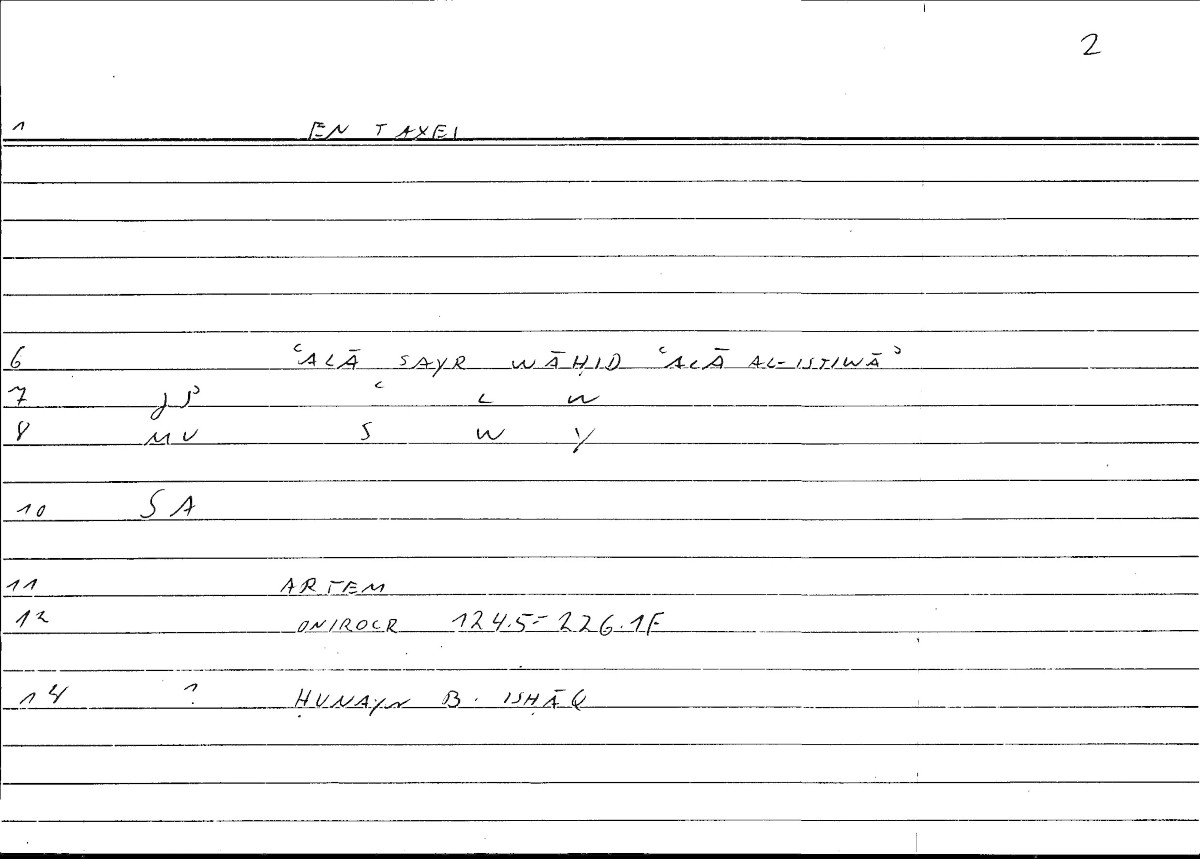 2
1 EN TAXEI
6 ʿALĀ SAYR WĀḤID ʿALĀ AL-ISTIWĀʾ
7 JP ʿ L W
8 MV S W Y
10 SA
11 ARTEM
12 ONIROCR 124.5=226.1F
14 ? ḤUNAYN B. ISḤĀQ